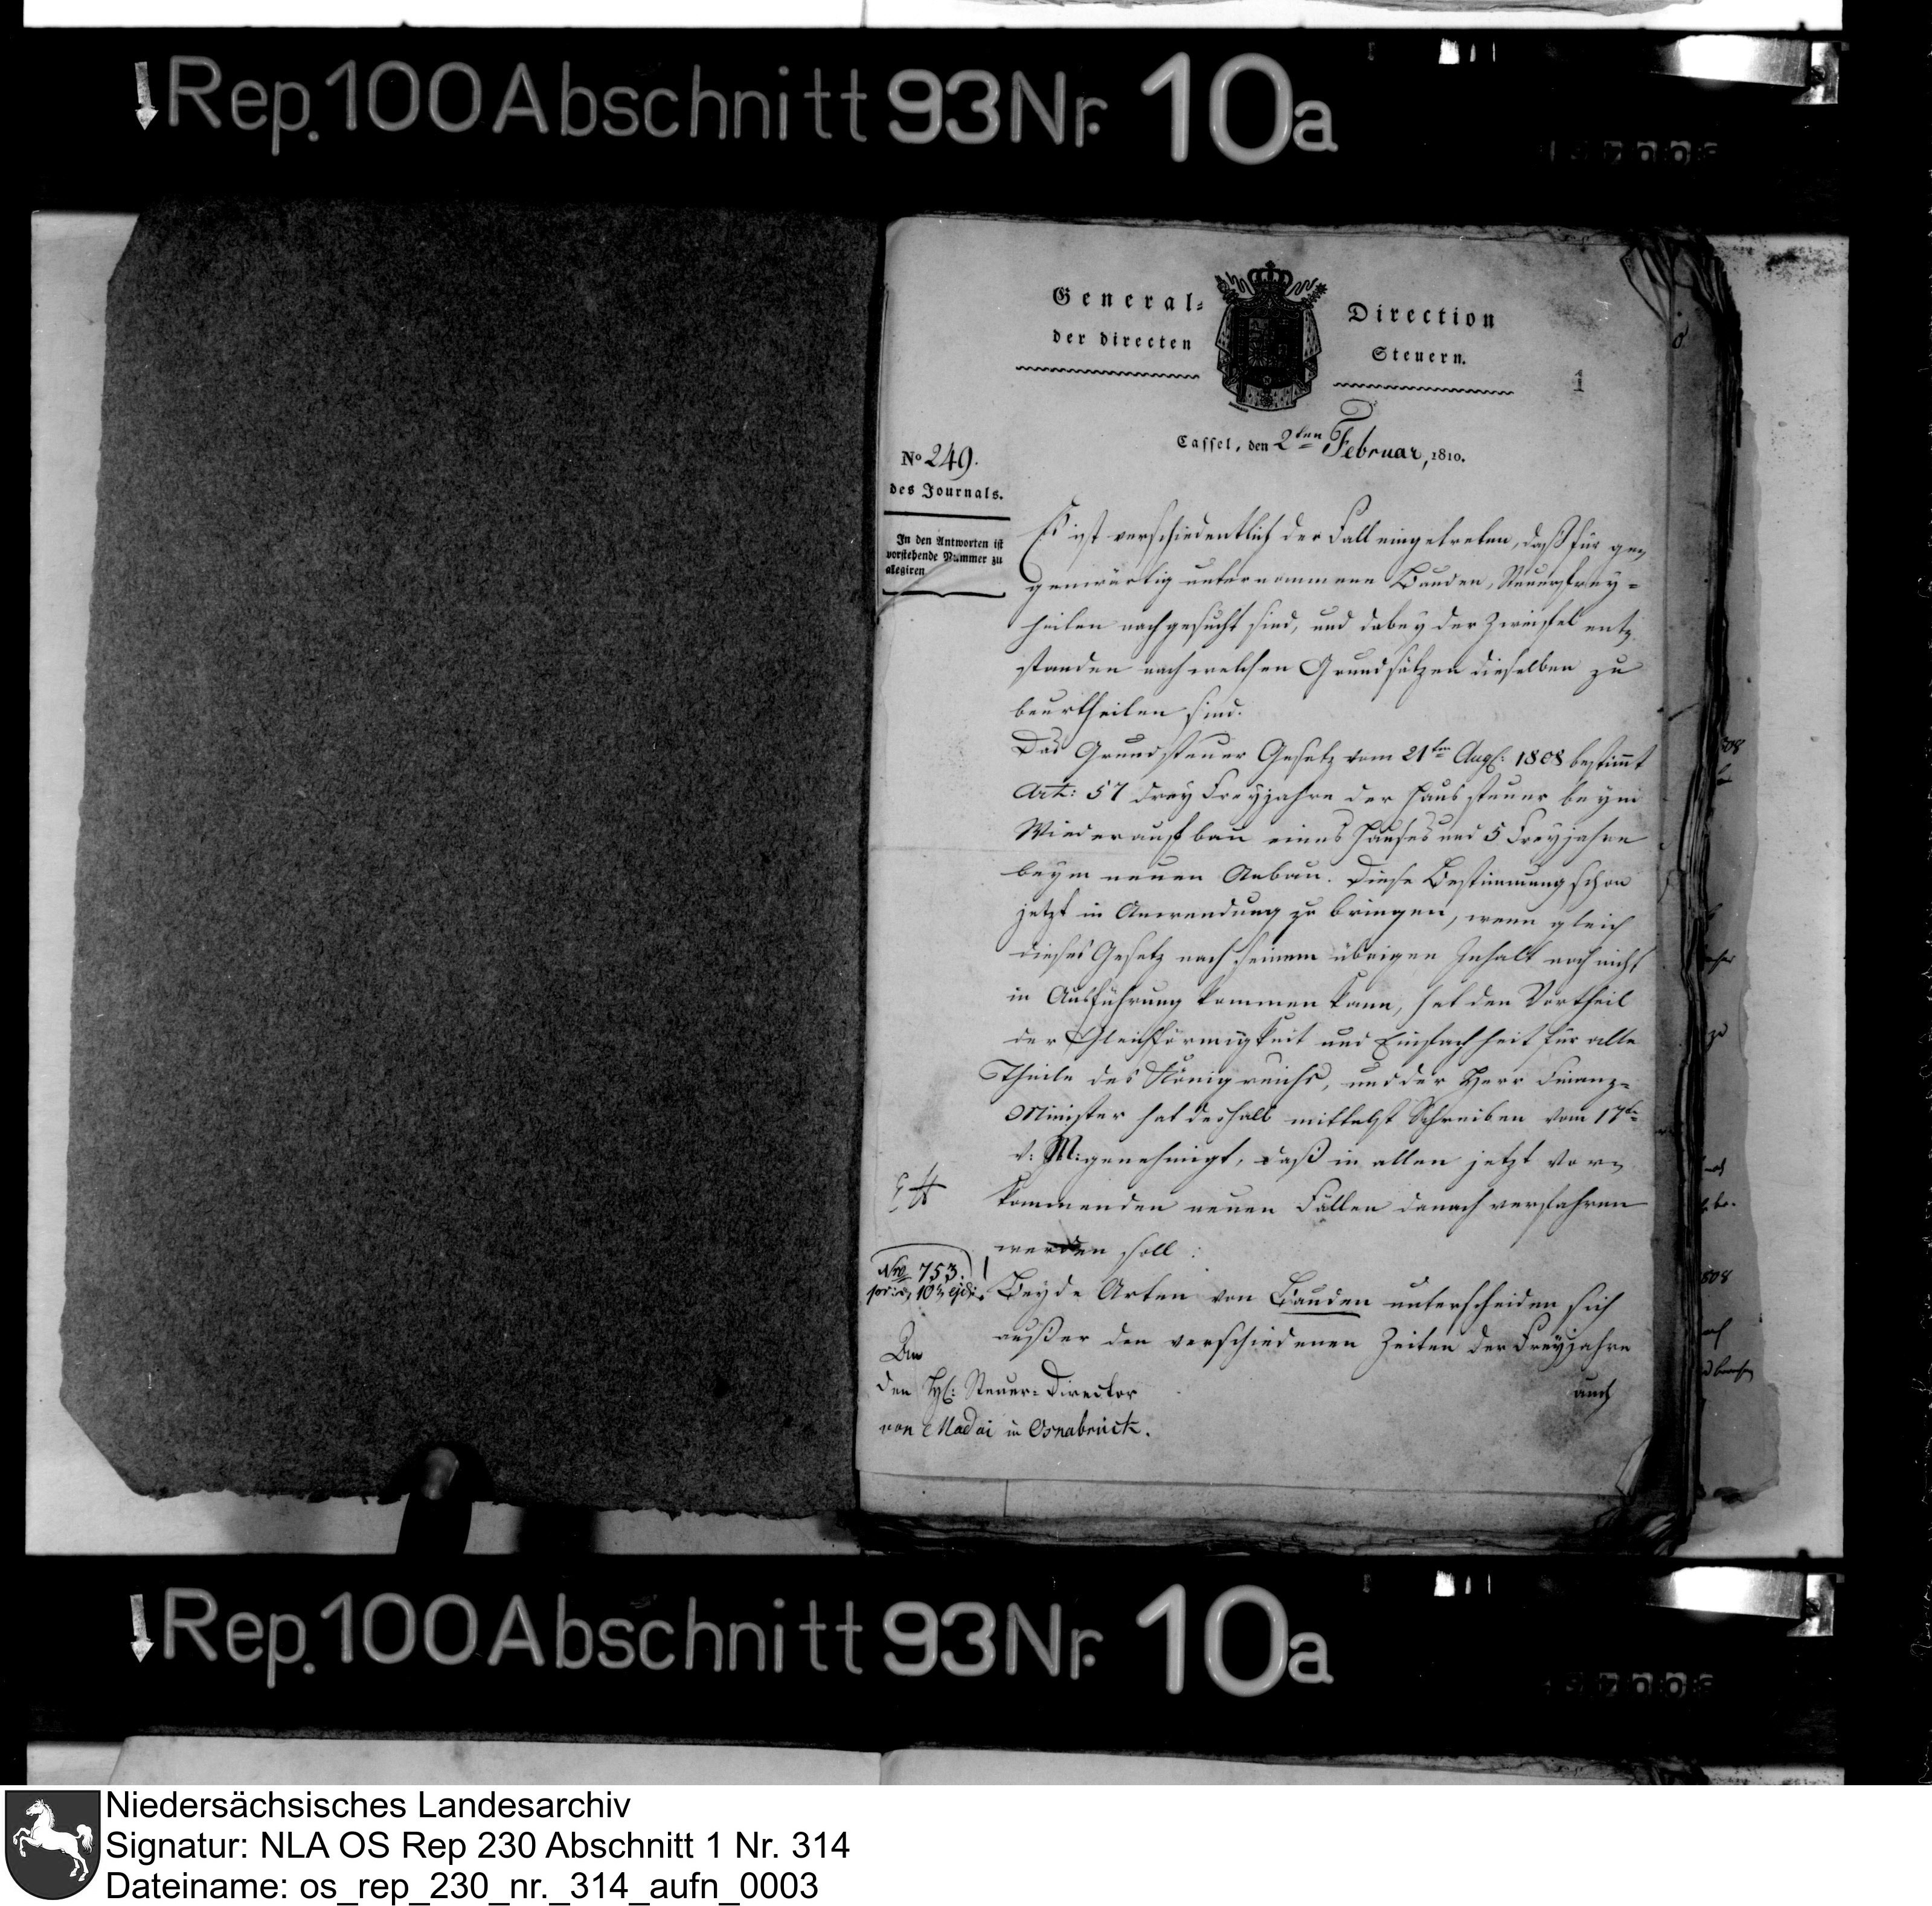 Rep. 100 Abschnitt 93 Nr. 10a
General-
Direction
der directen
Steuern.
1
Cassel, den 2ten Februar, 1810.
No 249.
des Journals.
In den Antworten ist
vorstehende Nummer zu
allegiren
Es ist verschiedentlich der Fall eingetreten, daß für ge-
genwärtig unternommene Bauden, Steuerfrey-
heiten nachgesucht sind, und dabey der Zweifel ent-
standen nach welchen Grundsätzen dieselben zu
beurtheilen sind.
Das Grundsteuer Gesetz vom 21ten Augs: 1808 bestimt
Art: 57 drey Freyjahre der Haussteuer beym
Wiederaufbau eines Hauses und 5 Freyjahre
beym neuen Anbau. Diese Bestimmung schon
jetzt in Anwendung zu bringen, wenn gleich
dieses Gesetz nach seinem übrigen Inhalt noch nicht
in Ausführung kommen kann, hat den Vortheil
der Gleichförmigkeit und Einfachheit für alle
Theile des Königreichs, und der Herr Finanz-
Minister hat deshalb mittelst Schreiben vom 17ten
v: M: genehmigt, daß in allen jetzt vor-
kommenden neuen Fällen danach verfahren
werden soll:
Nro 753.
Beyde Arten von Bauden unterscheiden sich
außer den verschiedenen Zeiten der Freyjahre
auch
An
den H: Steuer-Director
von Madai in Osnabrück.
Rep. 100 Abschnitt 93 Nr. 10a
Niedersächsisches Landesarchiv
Signatur: NLA OS Rep 230 Abschnitt 1 Nr. 314
Dateiname: os_rep_230_nr._314_aufn_0003